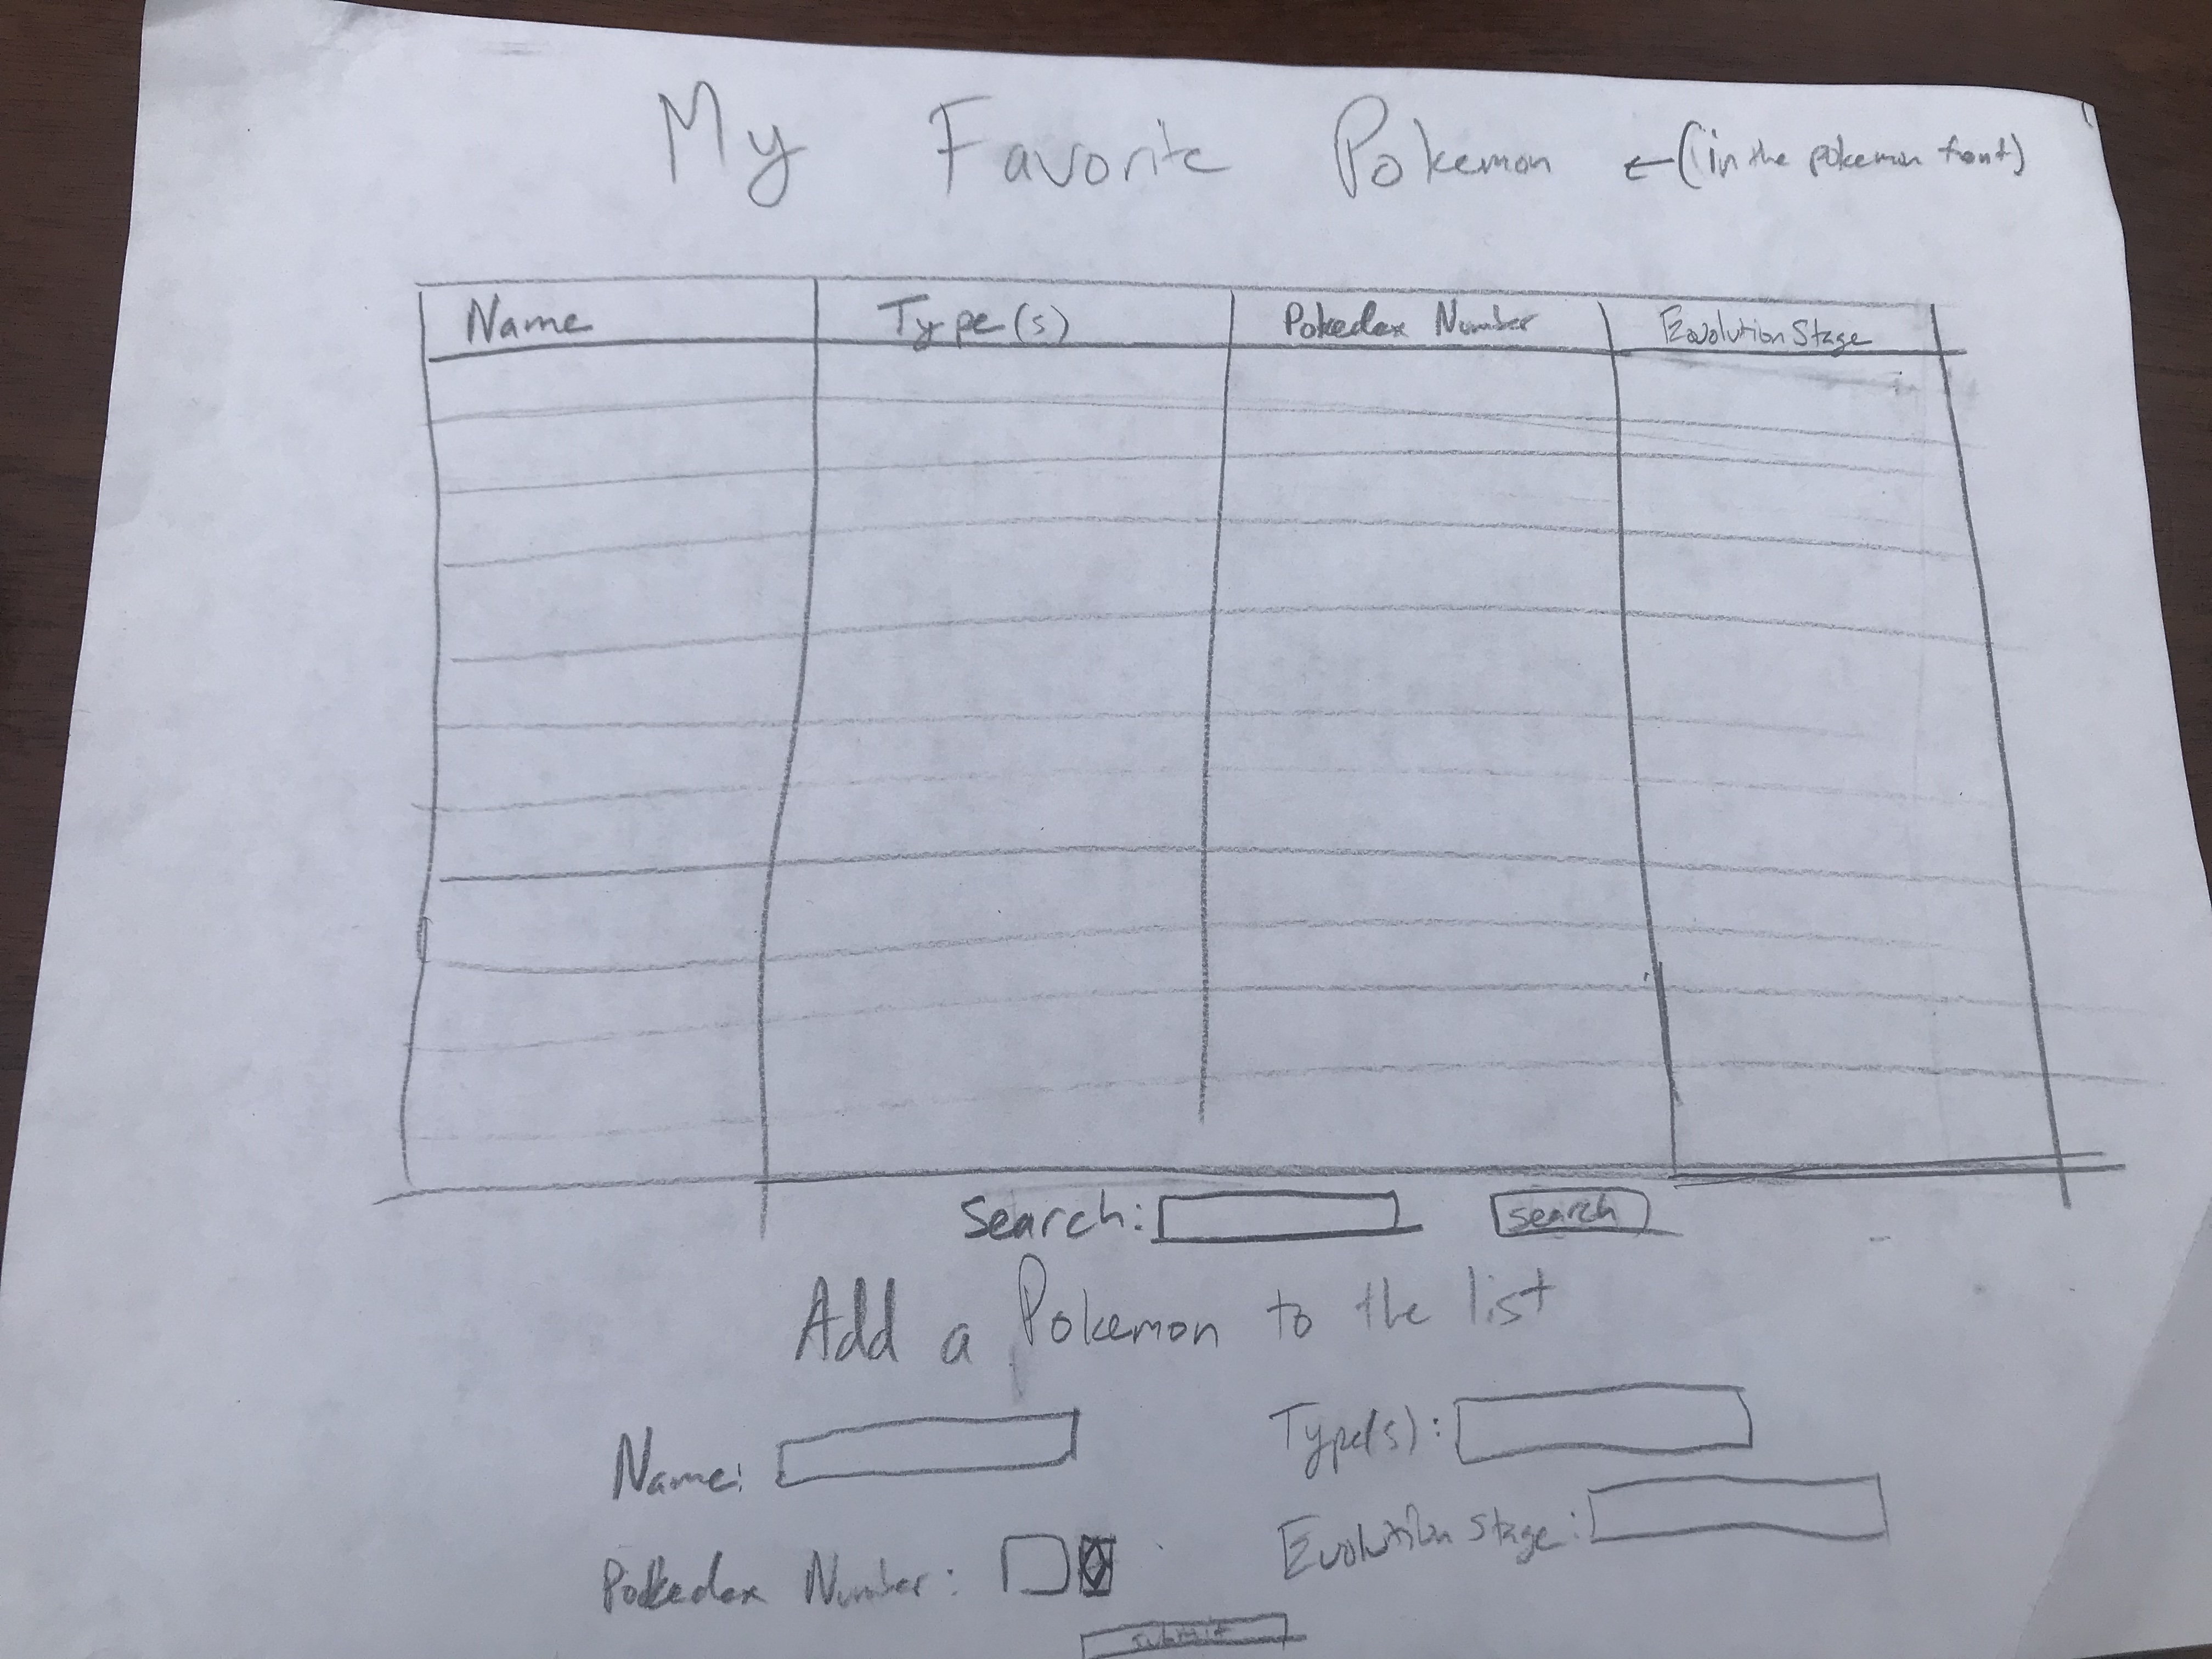 My Favorite Pokemon ←(in the pokemon font)
Name Type(s) Pokedex Number Evolution Stage
Search: search
Add a Pokemon to the list
Name: Type(s):
Pokedex Number: Evolution Stage:
submit